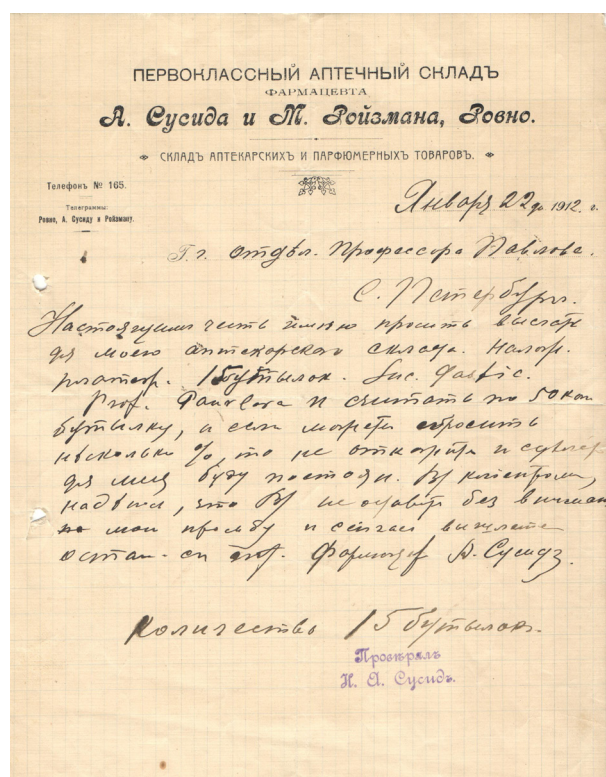 ПЕРВОКЛАССНЫЙ АПТЕЧНЫЙ СКЛАДЪ
ФАРМАЦЕВТА
А. Сусида и М. Ройзмана, Ровно.
СКЛАДЪ АПТЕКАРСКИХЪ И ПАРФЮМЕРНЫХЪ ТОВАРОВЪ.
Телефонъ № 165.
Телеграммы:
Ровно, А. Сусиду и Ройзману.
Января 22 1912 г.
Г. г. Отдѣл. Профессора Павлова.
С. Петербург.
Настоящимъ честь имѣю просить выслать
для моего аптекарского склада. налож.
платеж. 15 бутылок. Suc. Gastric.
Prof. Pawlowa и считать по 50 коп
бутылку, а если можете сбросить
нѣсколько %, то не откажите и сдѣлать
для меня буду постоян. Вѣ клиентром,
надѣюсь, что Вы не оставите без вниман
мою просьбу и сейчас вышлете
остаюсь Фармацевт А. Сусидъ.
Количество 15 бутылок.
Провѣрялъ
Н. А. Сусидъ.